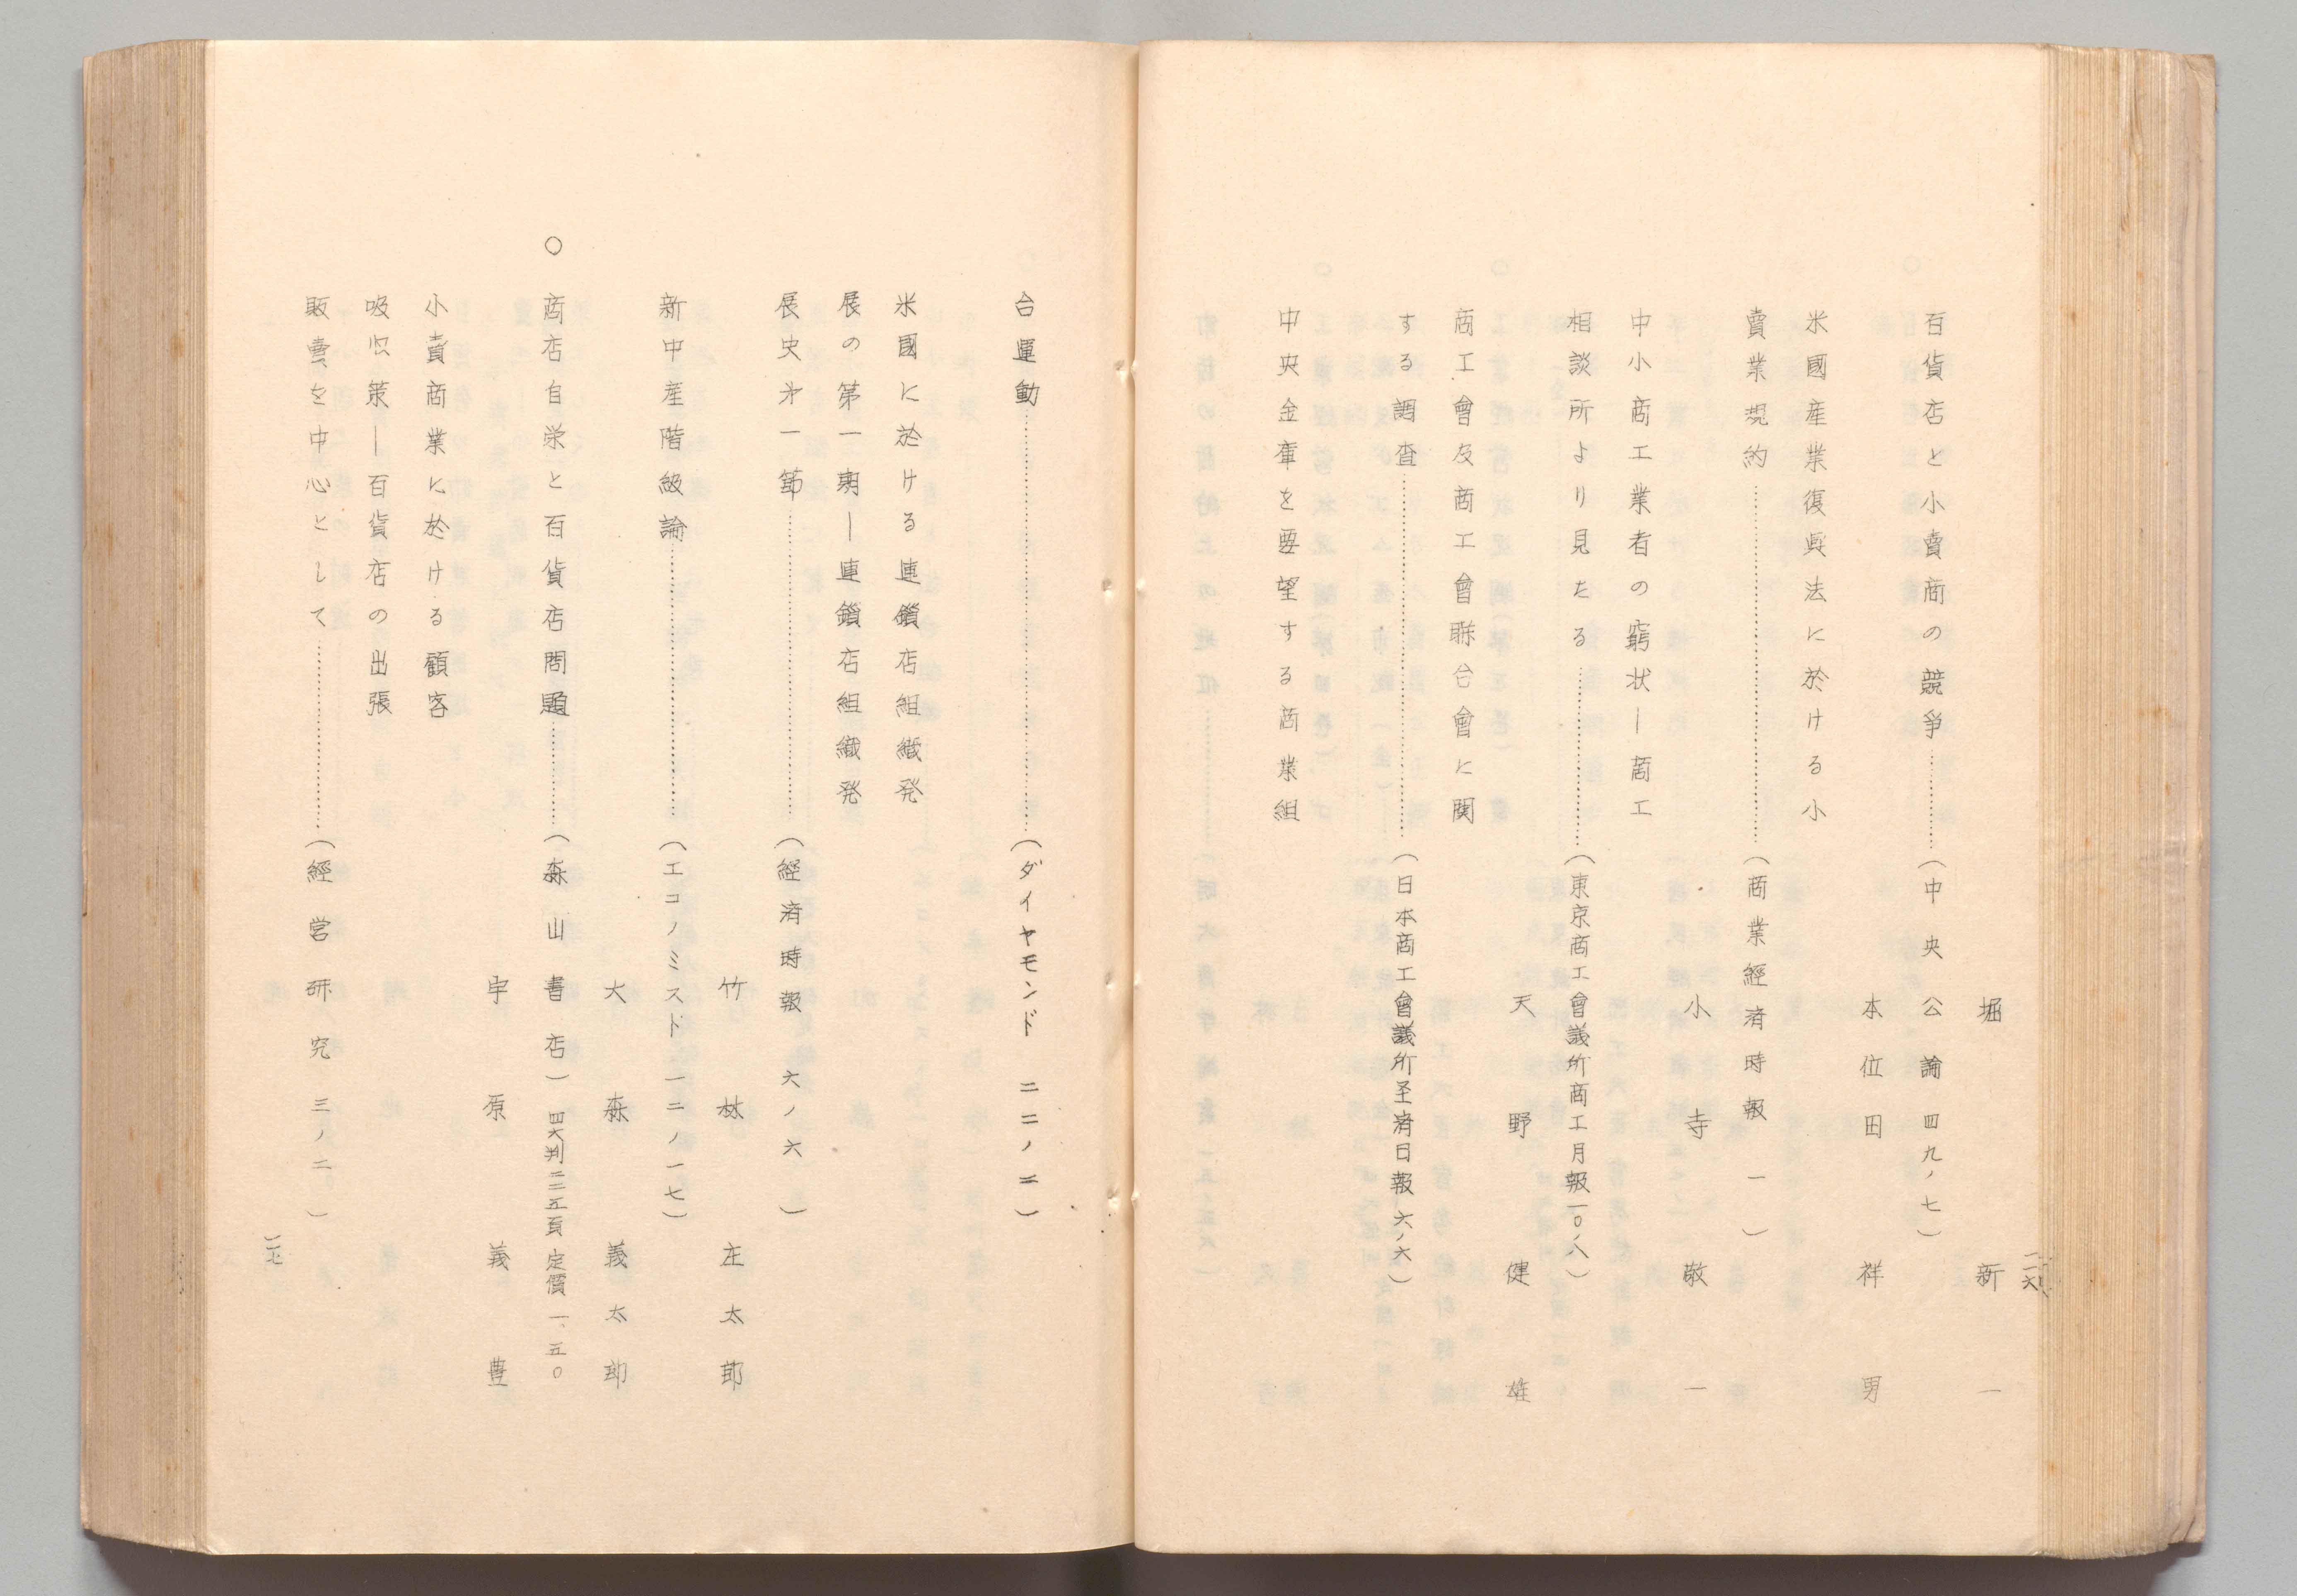 二一六
堀新一
百貨店と小賣商の競爭…………(中央公論 四九ノ七)
本位田祥男
米國産業復興法に於ける小
賣業規約…………(商業經済時報 一)
小寺敬一
中小商工業者の窮状―商工
相談所より見たる…………(東京商工會議所商工月報一〇ノ八)
天野健雄
商工會及商工會聨合會に関
する調査…………(日本商工會議所圣済日報 六ノ六)
中央金庫を要望する商業組
合運動…………(ダイヤモンド 二二ノ二)
米國に於ける連鎖店組織発
展の第一期―連鎖店組織発
展史才一節…………(経済時報 六ノ六)
竹林庄太郎
新中産階級論…………(エコノミスト 一二ノ一七)
大森義太郎
○商店自栄と百貨店問題…………(森山書店)四六判二三五頁定價一、五〇
宇原義豊
小賣商業に於ける顧客
吸収策―百貨店の出張
販賣を中心として…………(經営研究 三ノ二)
二一七